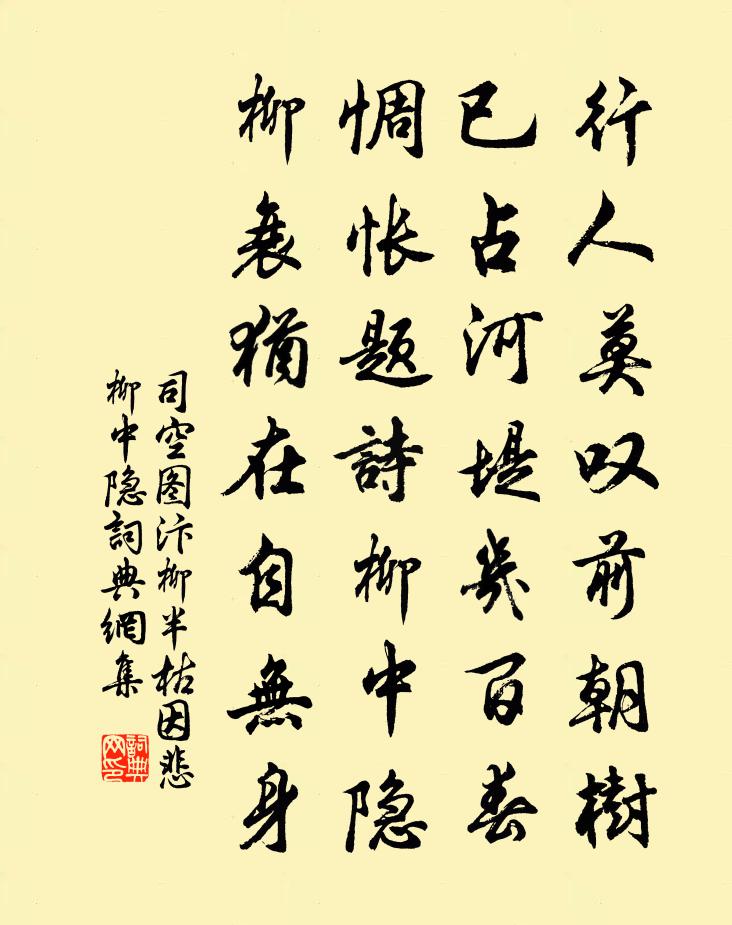 行人莫叹前朝樹
已占河堤幾百春
惆怅題詩柳中隐
柳衰猶在自無身
司空图汴柳半枯因悲
柳中隐詞典網集
詞典网印